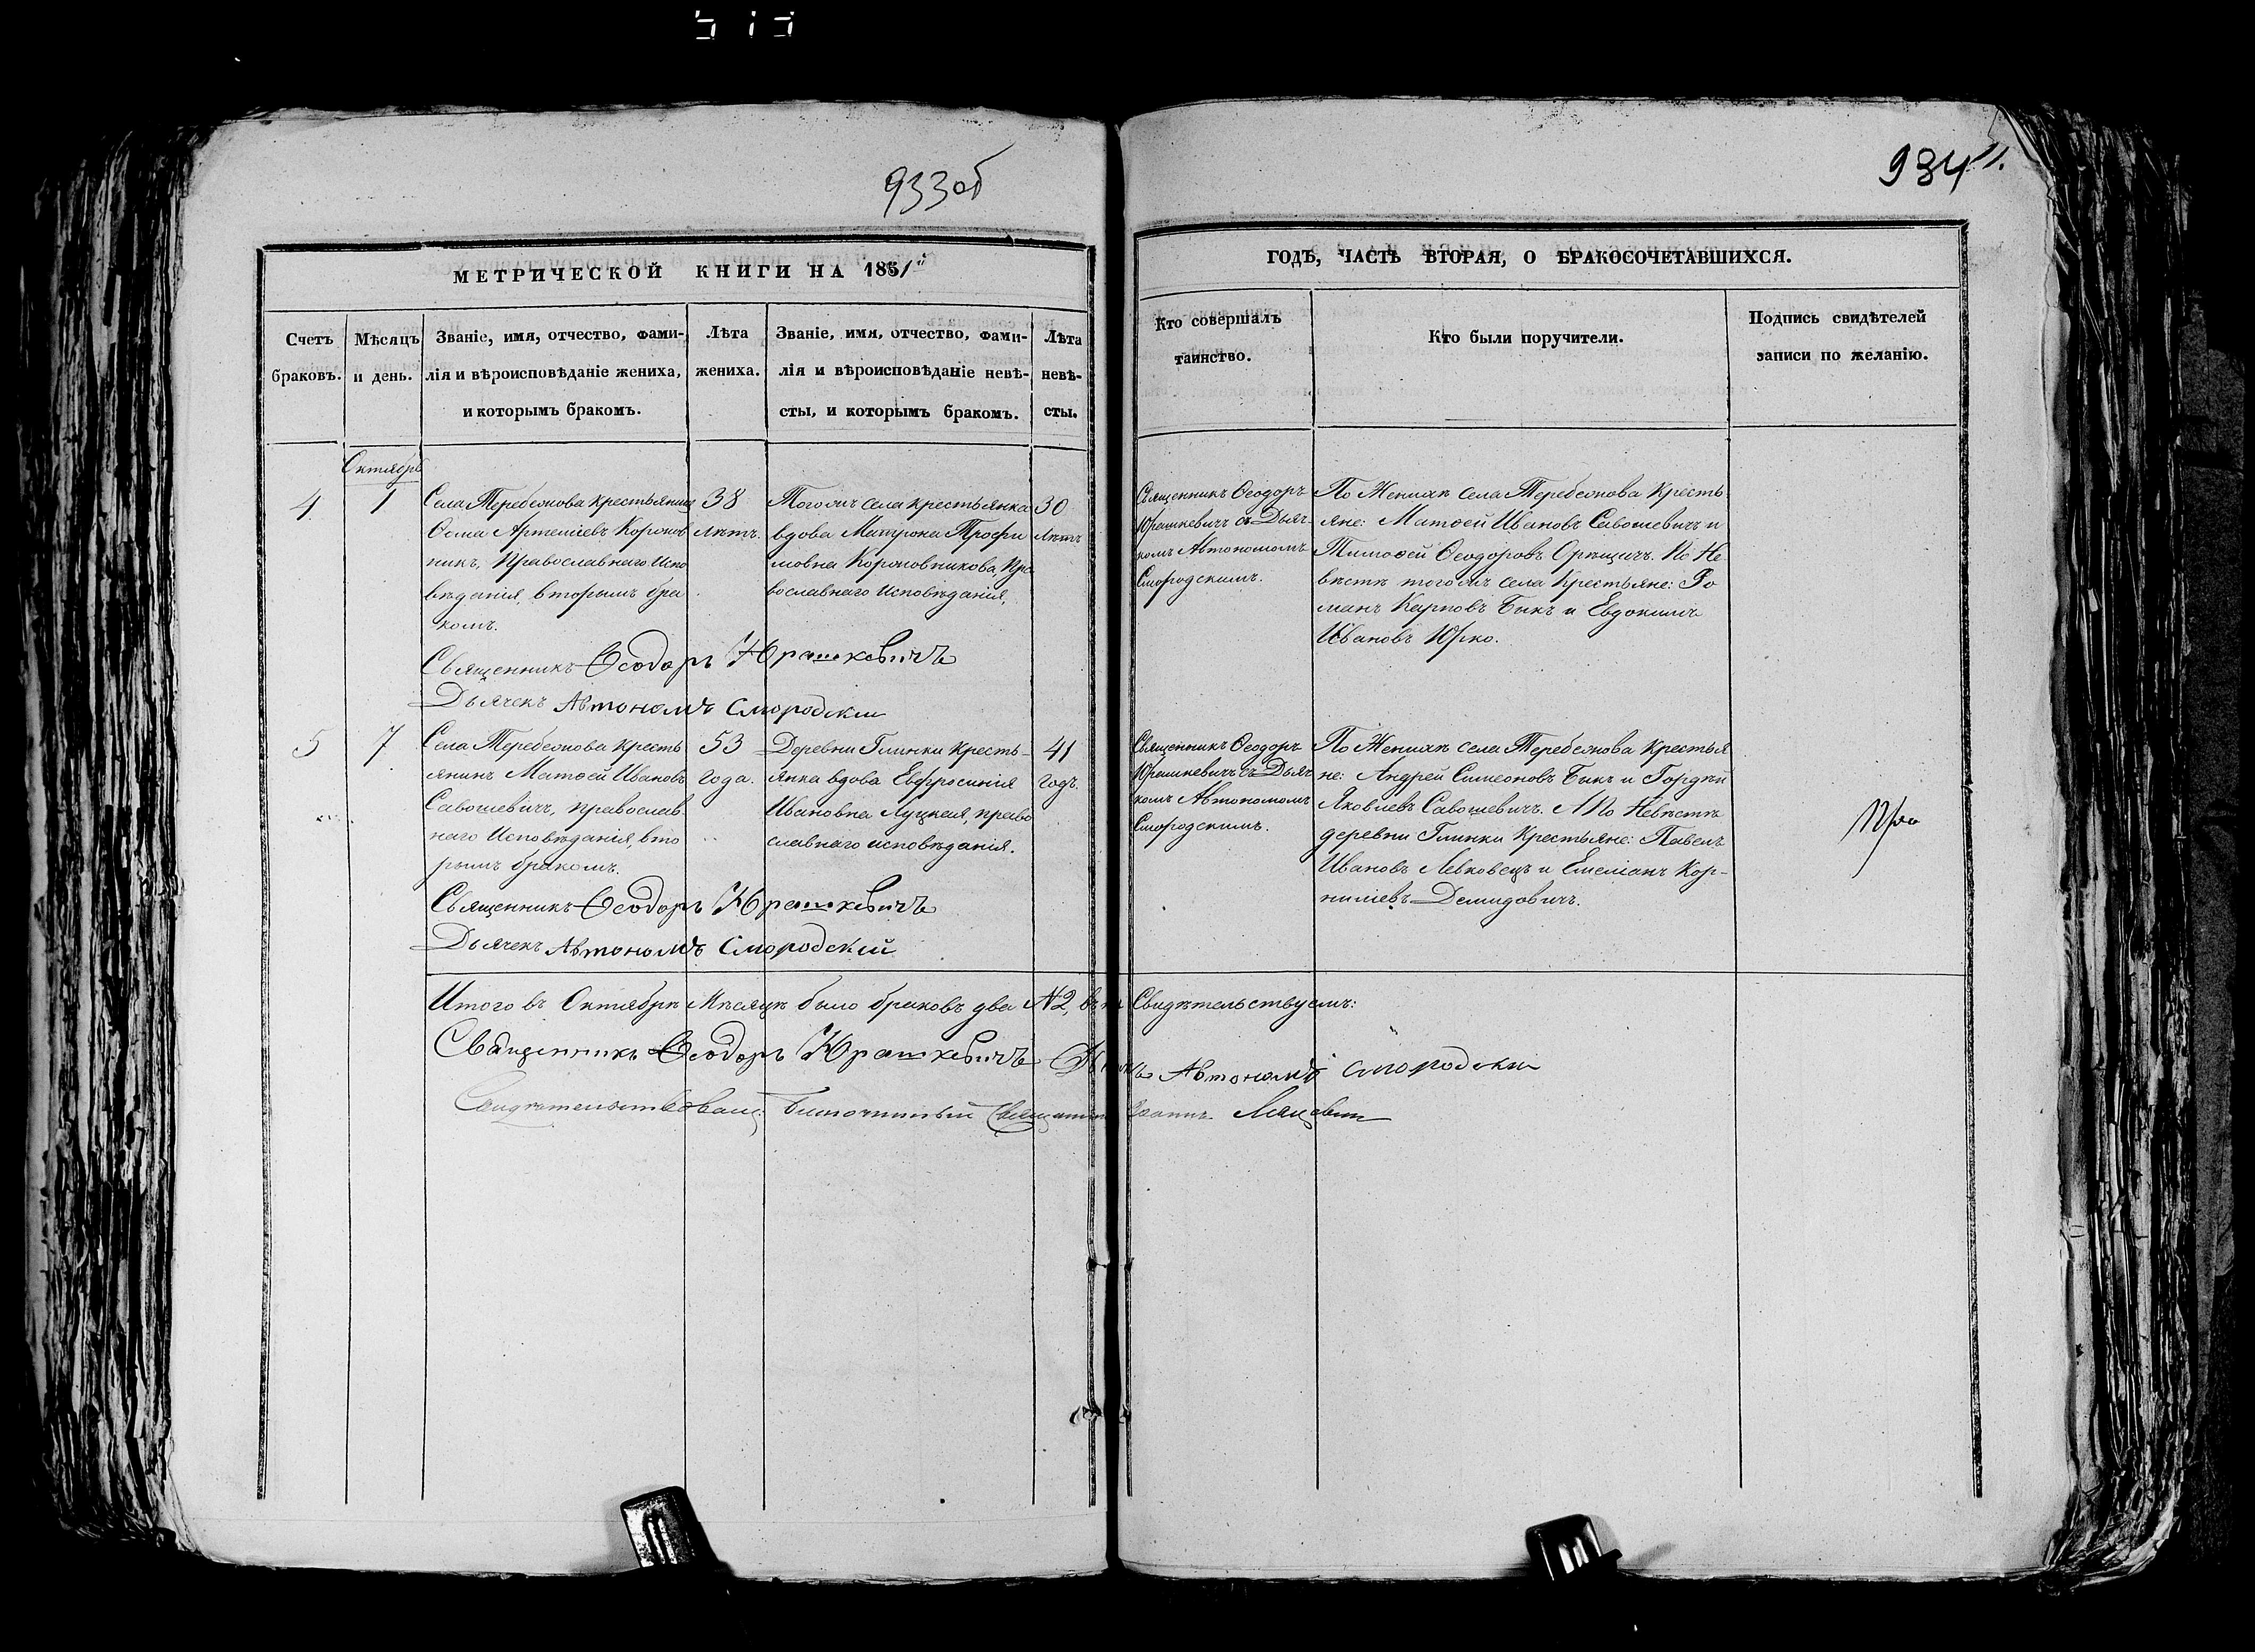 933об
934
МЕТРИЧЕСКОЙ КНИГИ НА 1851й
ГОДЪ, ЧАСТЬ ВТОРАЯ, О БРАКОСОЧЕТАВШИХСЯ.
Счетъ браковъ.
Мѣсяцъ и день.
Званіе, имя, отчество, фами-
лія и вѣроисповѣданіе жениха,
и которымъ бракомъ.
Лѣта
жениха.
Званіе, имя, отчество, фами-
лія и вѣроисповѣданіе невѣ-
сты, и которымъ бракомъ.
Лѣта
невѣ-
сты.
Кто совершалъ
таинство.
Кто были поручители.
Подпись свидѣтелей
записи по желанію.
Октябрь
4.
1
Села Теребежова крестьянинъ
Ѳома Артеміевъ Коронов
никъ, Православнаго Испо
вѣданія, вторымъ бра
комъ.
38
лѣтъ.
Того же села крестьянка
вдова Матрона Трофи
мовна Короновникова, Пра
вославнаго Исповѣданія,
30
лѣтъ
Священникъ Ѳеодоръ
Юрашкевичъ съ Дьяч-
комъ Автономомъ
Смородскимъ.
По Женихѣ села Теребежова Кресть
яне: Матѳей Ивановъ Савошевичъ и
Тимоѳей Ѳеодоровъ Орѣщичъ. По Не
вѣстѣ того же села Крестьяне: Ро
манъ Карповъ Быкъ и Евдокимъ
Ивановъ Юрко.
Священникъ Ѳеодоръ Юрашкевичъ
Дьячекъ Автономъ Смородскій
5
7
Села Теребежова Кресть
янинъ Матѳей Ивановъ
Савошевичъ, православ
наго Исповѣданія, вто
рымъ бракомъ.
53
года.
Деревни Глинки Кресть-
янка вдова Евфросинія
Ивановна Луцкая, право
славнаго исповѣданія.
41
годъ.
Священникъ Ѳеодоръ
Юрашкевичъ съ Дьяч
комъ Автономомъ
Смородскимъ.
По Женихѣ села Теребежова Крестья
не: Андрей Симеоновъ Быкъ и Гордѣй
Яковлевъ Савошевичъ. А По Невѣстѣ
деревни Глинки Крестьяне: Павелъ
Ивановъ Левковецъ и Емеліанъ Кор-
ниліевъ Демидовичъ.
Священникъ Ѳеодоръ Юрашкевичъ
Дьячекъ Автономъ Смородскій
Итого въ Октябрѣ Мѣсяцѣ было браковъ два №2, Свидѣтельствуемъ:
Священникъ Ѳеодоръ Юрашкевичъ Автономъ Смородскій
Свидѣтельствовалъ: Благочинный Священникъ Іоаннъ